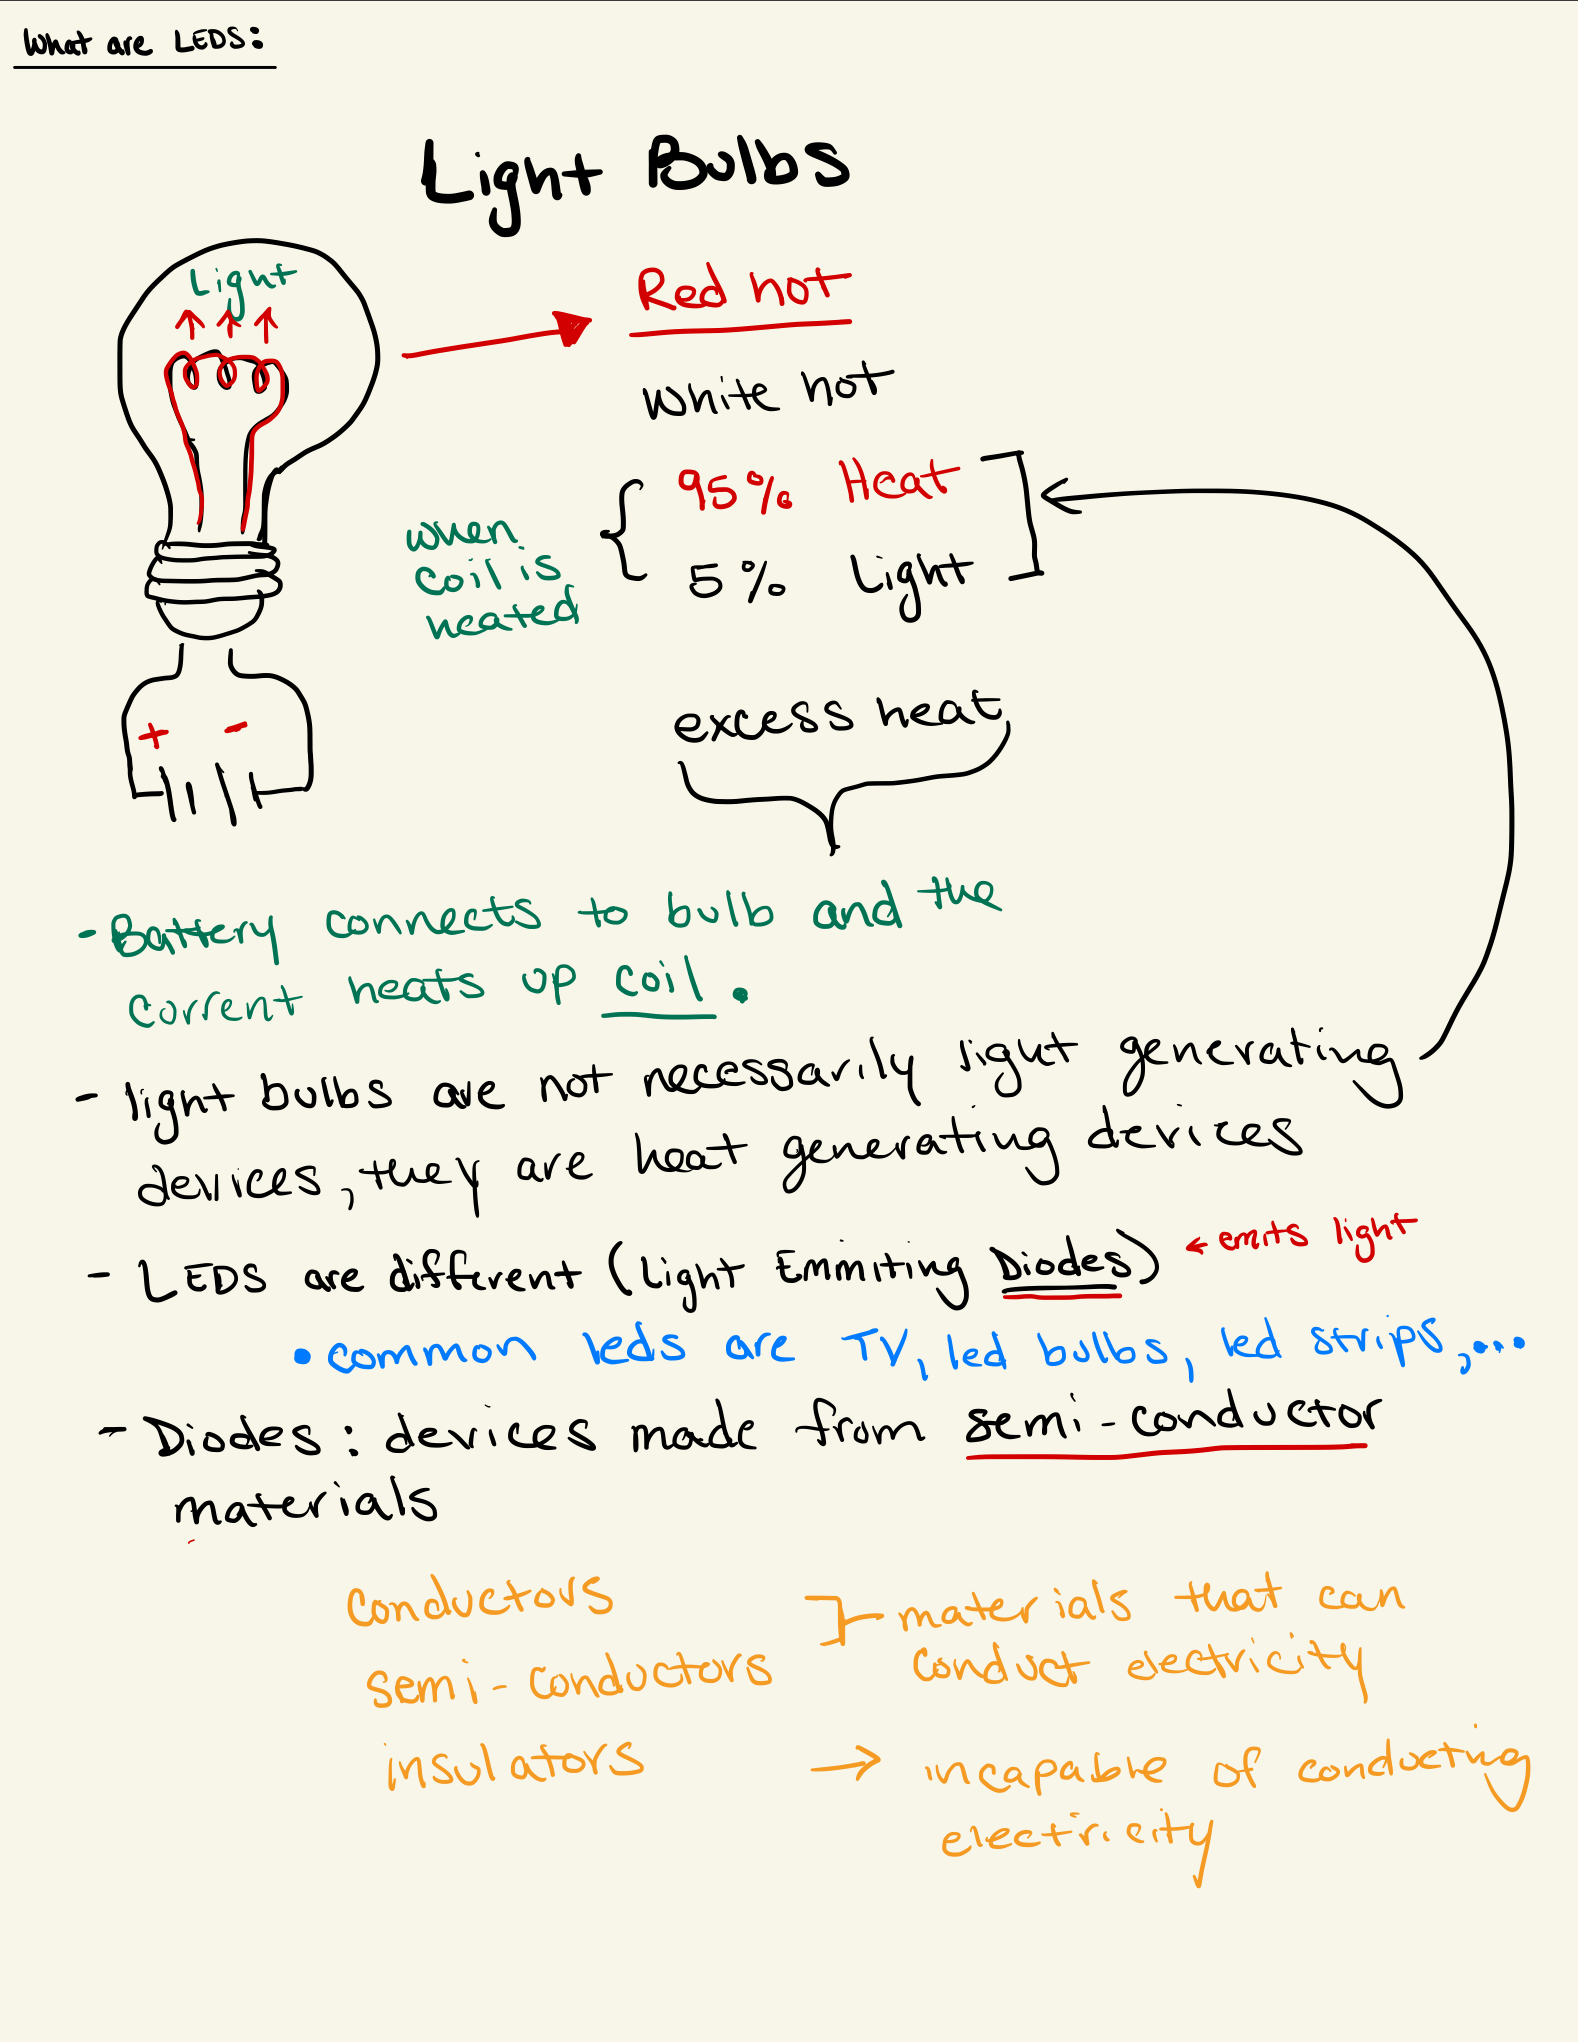 What are LEDS:
Light Bulbs
Light
Red hot
white hot
95% Heat
when
coil is
heated
5% Light
excess heat
+ -
- Battery connects to bulb and the
current heats up coil.
- light bulbs are not necessarily light generating
devices, they are heat generating devices
- LEDS are different (Light Emmiting Diodes) ← emits light
• common leds are TV, led bulbs, led strips,...
- Diodes: devices made from semi-conductor
materials
conductors
semi-conductors
materials that can
conduct electricity
insulators → incapable of conducting
electricity